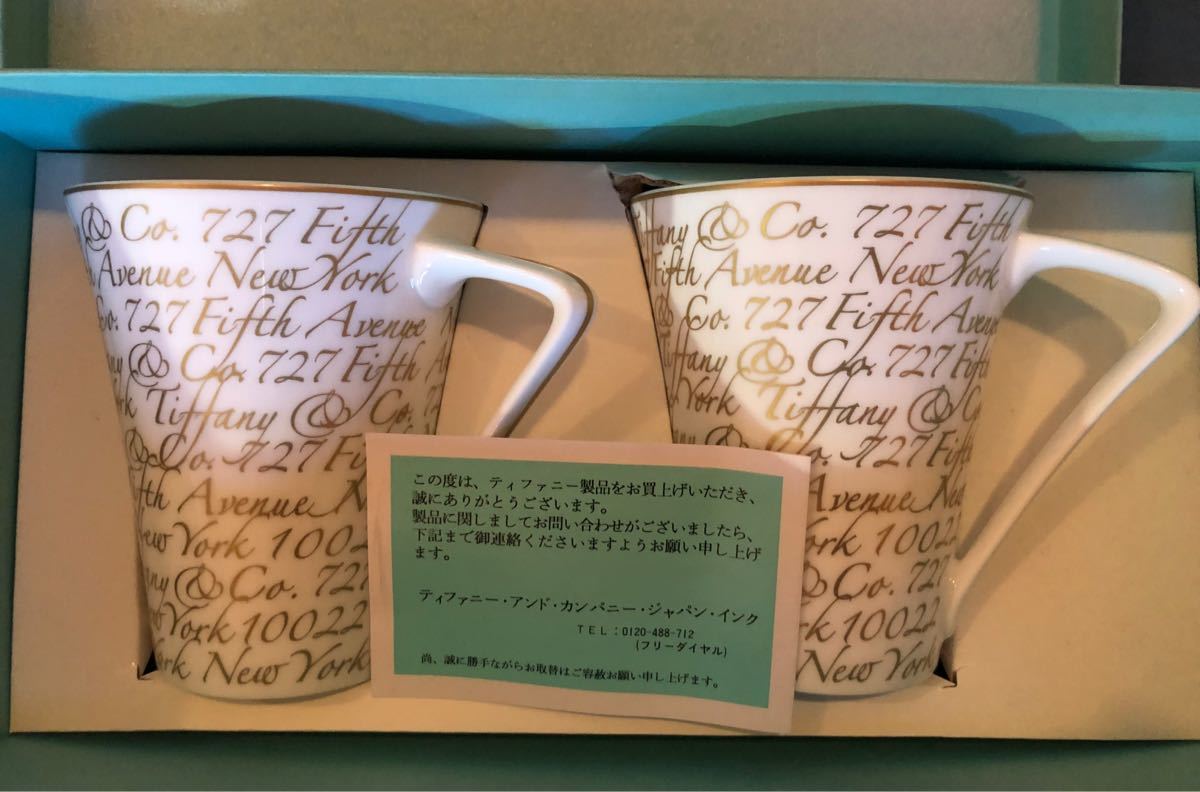 & Co. 727 Fifth
Avenue New York
Co. 727 Fifth Avenue
& Co. 727 Fifth
Tiffany & Co.
& Co. 727
Avenue
York 1002
& Co. 727
York 10022
New York
Tiffany & Co. 727 Fifth
Fifth Avenue New York
& Co. 727 Fifth
Tiffany & Co. 727 Fifth
York Tiffany & Co.
& Co. 727
Avenue New
York 10022
& Co. 727
10022
New York
この度は、ティファニー製品をお買上げいただき、
誠にありがとうございます。
製品に関しましてお問い合わせがございましたら、
下記まで御連絡くださいますようお願い申し上げ
ます。
ティファニー・アンド・カンパニー・ジャパン・インク
TEL:0120-488-712
(フリーダイヤル)
尚、誠に勝手ながらお取替はご容赦お願い申し上げます。